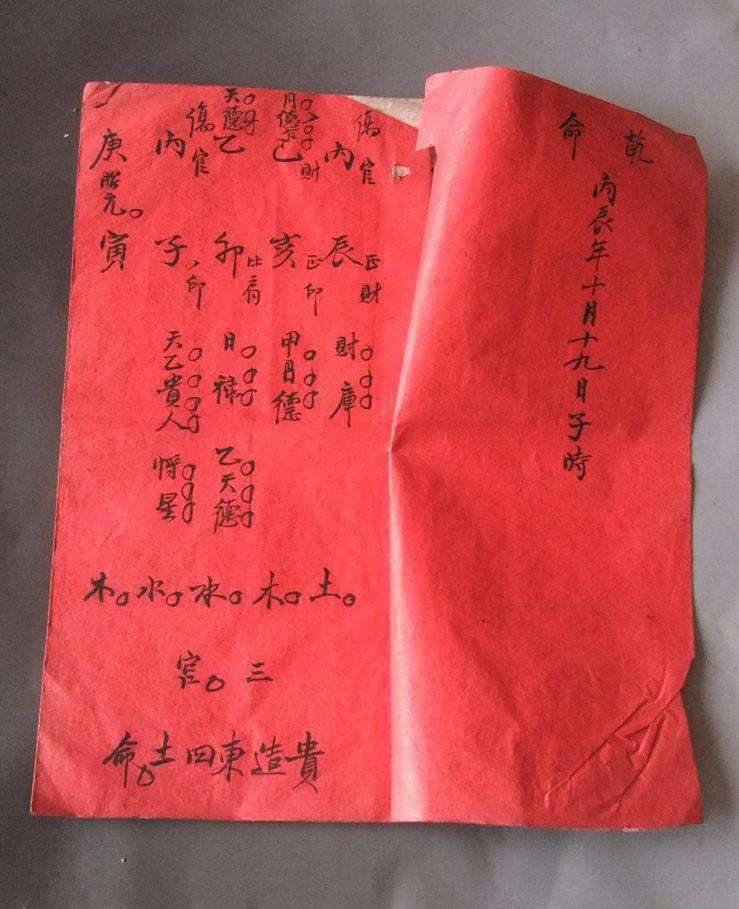 乾
命
丙辰年十月十九日子時
傷官
丙
辰
正財
財庫
己
財
亥
正印
甲月德
天德
乙
卯
比肩
日祿
乙天德
傷官
丙
子
印
天乙貴人
將星
庚
胎元
寅
土
木
水
水
木
三
宮
貴造東四土命